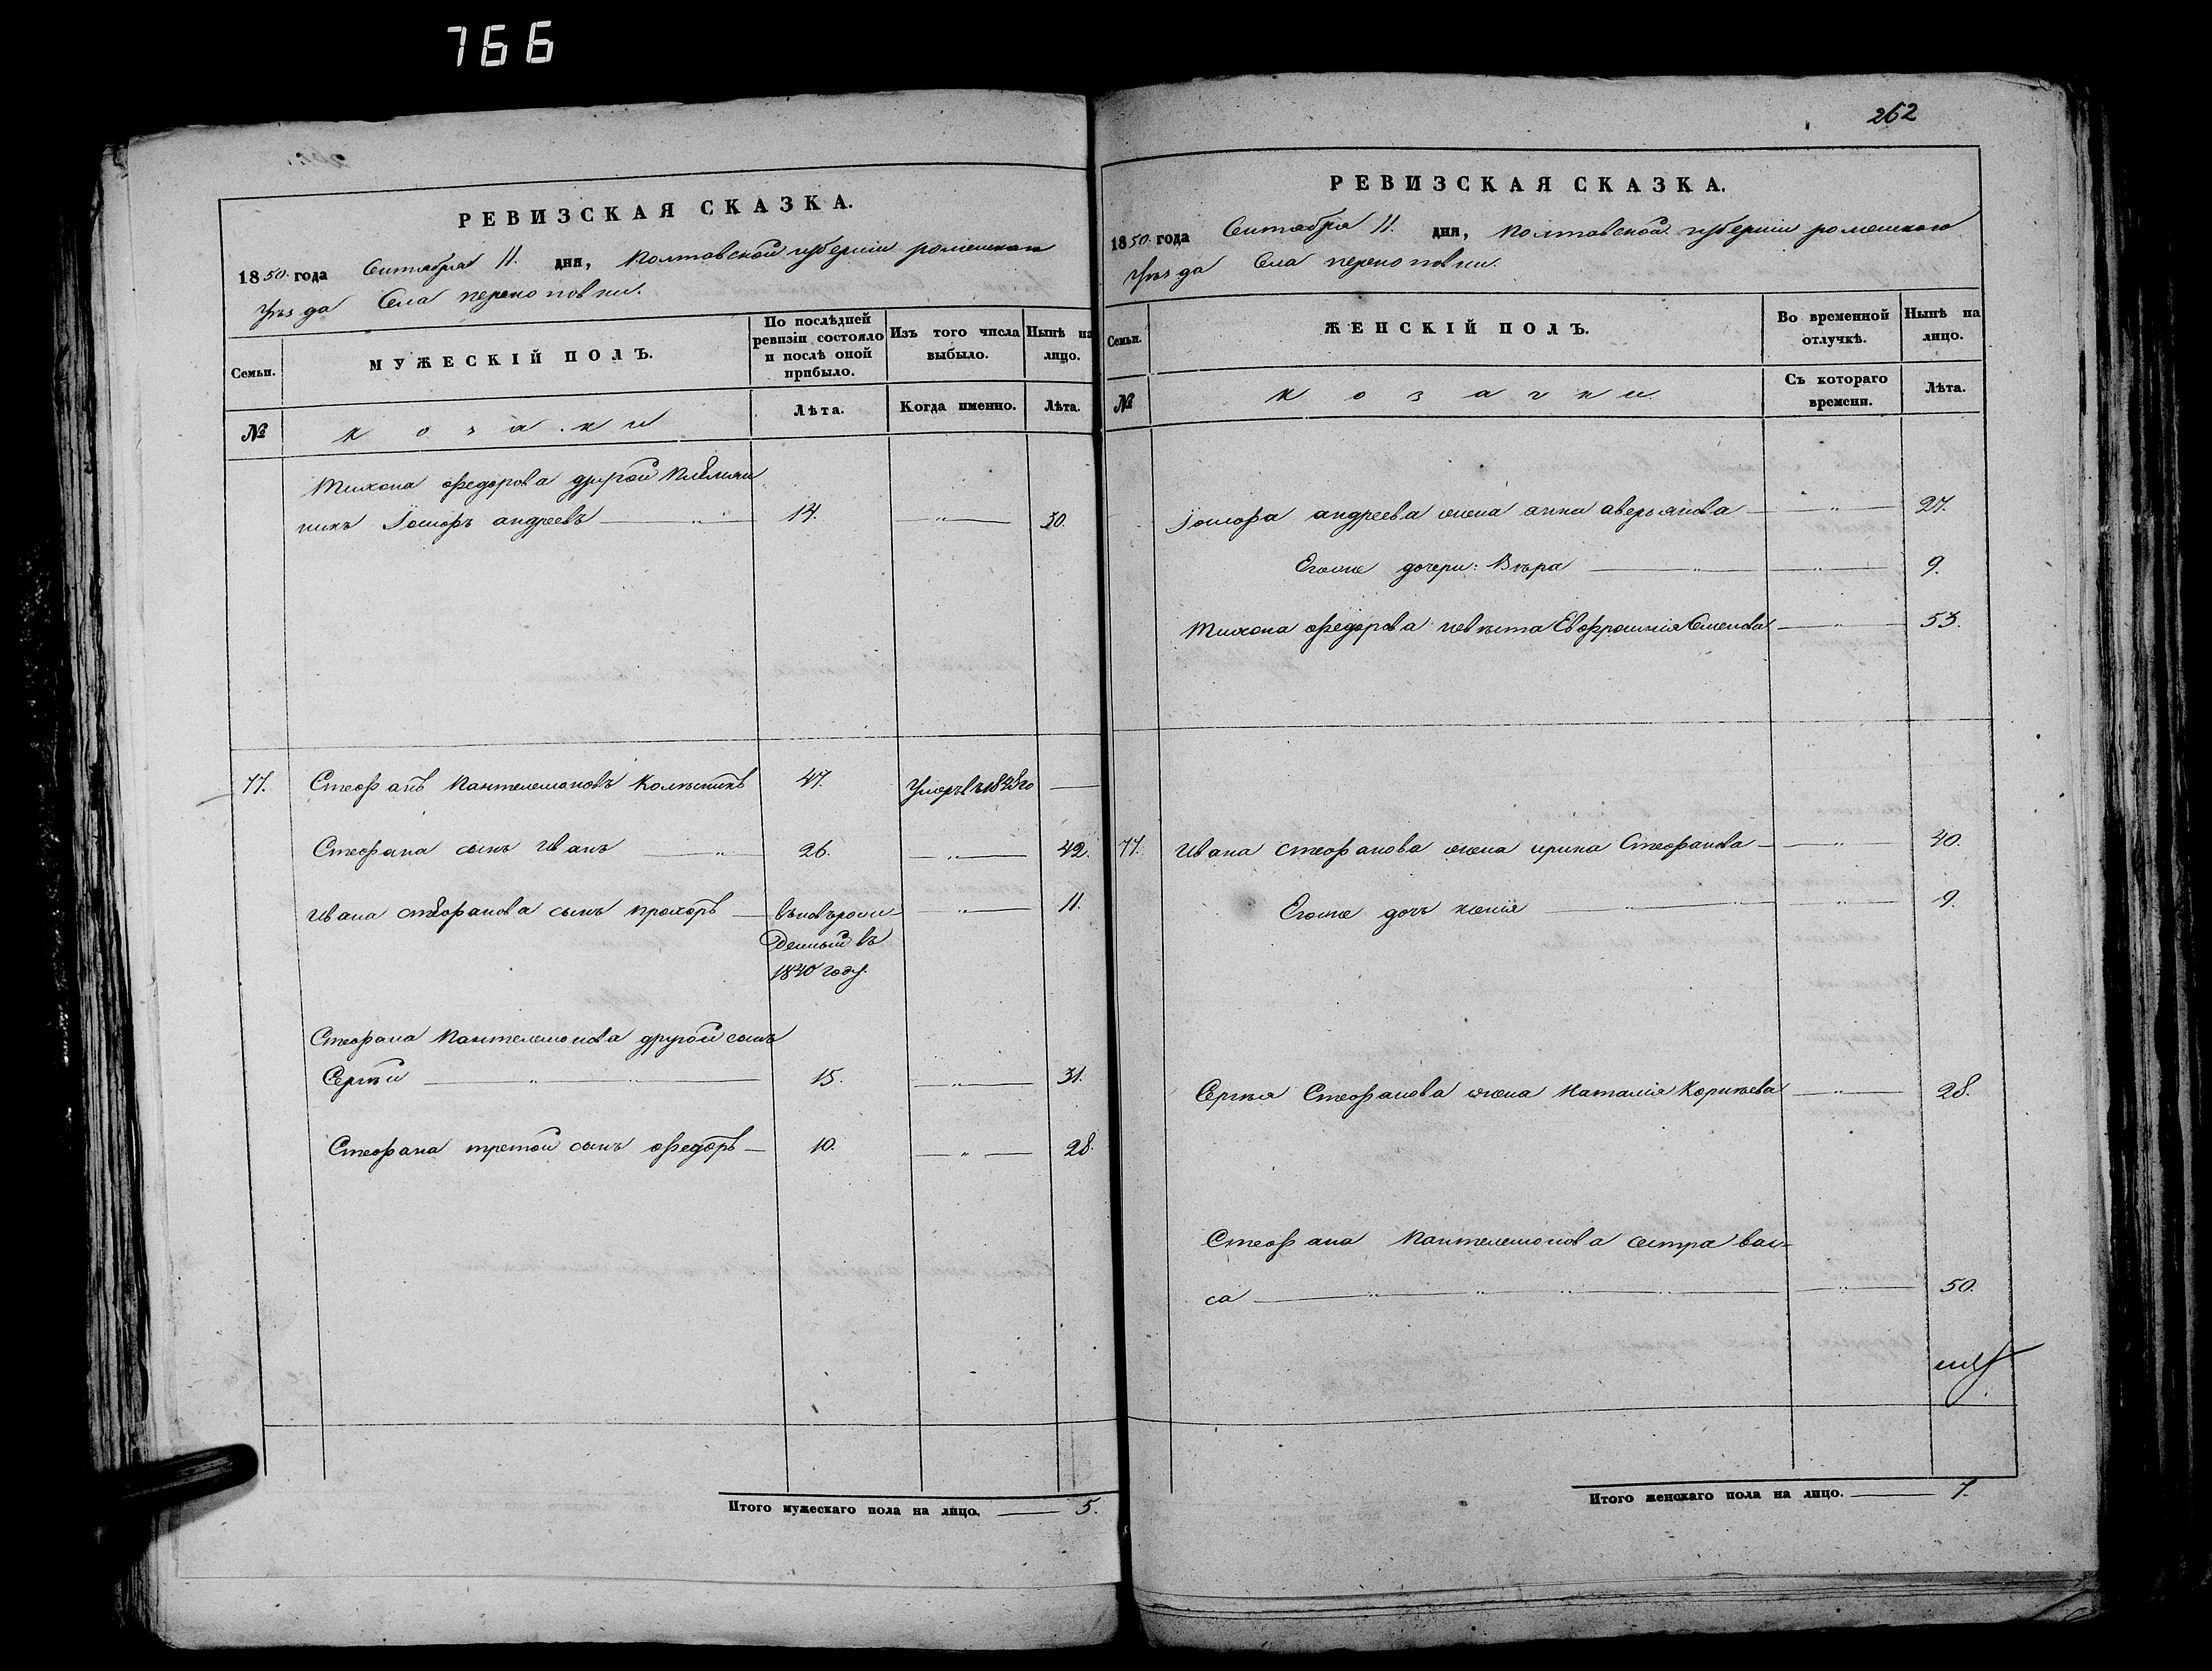 766
РЕВИЗСКАЯ СКАЗКА.
1850 года Сентября 11. дня, Полтавской губерніи роменскаго
уѣзда Села перекоповки.
Семьи.
МУЖЕСКІЙ ПОЛЪ.
По послѣдней ревизіи состояло и послѣ оной прибыло.
Изъ того числа выбыло.
Нынѣ на лицо.
№
козаки
Лѣта.
Когда именно.
Лѣта.
Тихона федорова другой племян
никъ Іосифъ андреевъ — 14. — 30.
77. Стефанъ Пантелемоновъ Колѣсникъ 47. Умеръ въ 1848 го —
Стефана сынъ иванъ — 26. — 42.
ивана стефанова сынъ прохоръ — вновьрож — 11.
денный въ
1840 году.
Стефана Пантелемонова другой сынъ
Сергѣй — 15. — 31.
Стефана третой сынъ федоръ — 10. — 28.
Итого мужескаго пола на лицо. — 5.
262
РЕВИЗСКАЯ СКАЗКА.
1850 года Сентября 11. дня, Полтавской губерніи роменскаго
уѣзда Села перекоповки.
Семьи.
ЖЕНСКІЙ ПОЛЪ.
Во временной отлучкѣ.
Нынѣ на лицо.
№
козачки
Съ котораго времени.
Лѣта.
Іосифа андреева жена анна аверьянова — 27.
Егоже дочери: Вѣра — 9.
Тихона федорова невѣста Евфросинія Семенова — 53.
77. ивана стефанова жена ирина Стефанова — 40.
Егоже дочь ксенія — 9.
Сергѣя Стефанова жена Наталія Корнѣева — 28.
Стефана Пантелемонова сестра вас-
са — 50.
Итого женскаго пола на лицо. — 7.